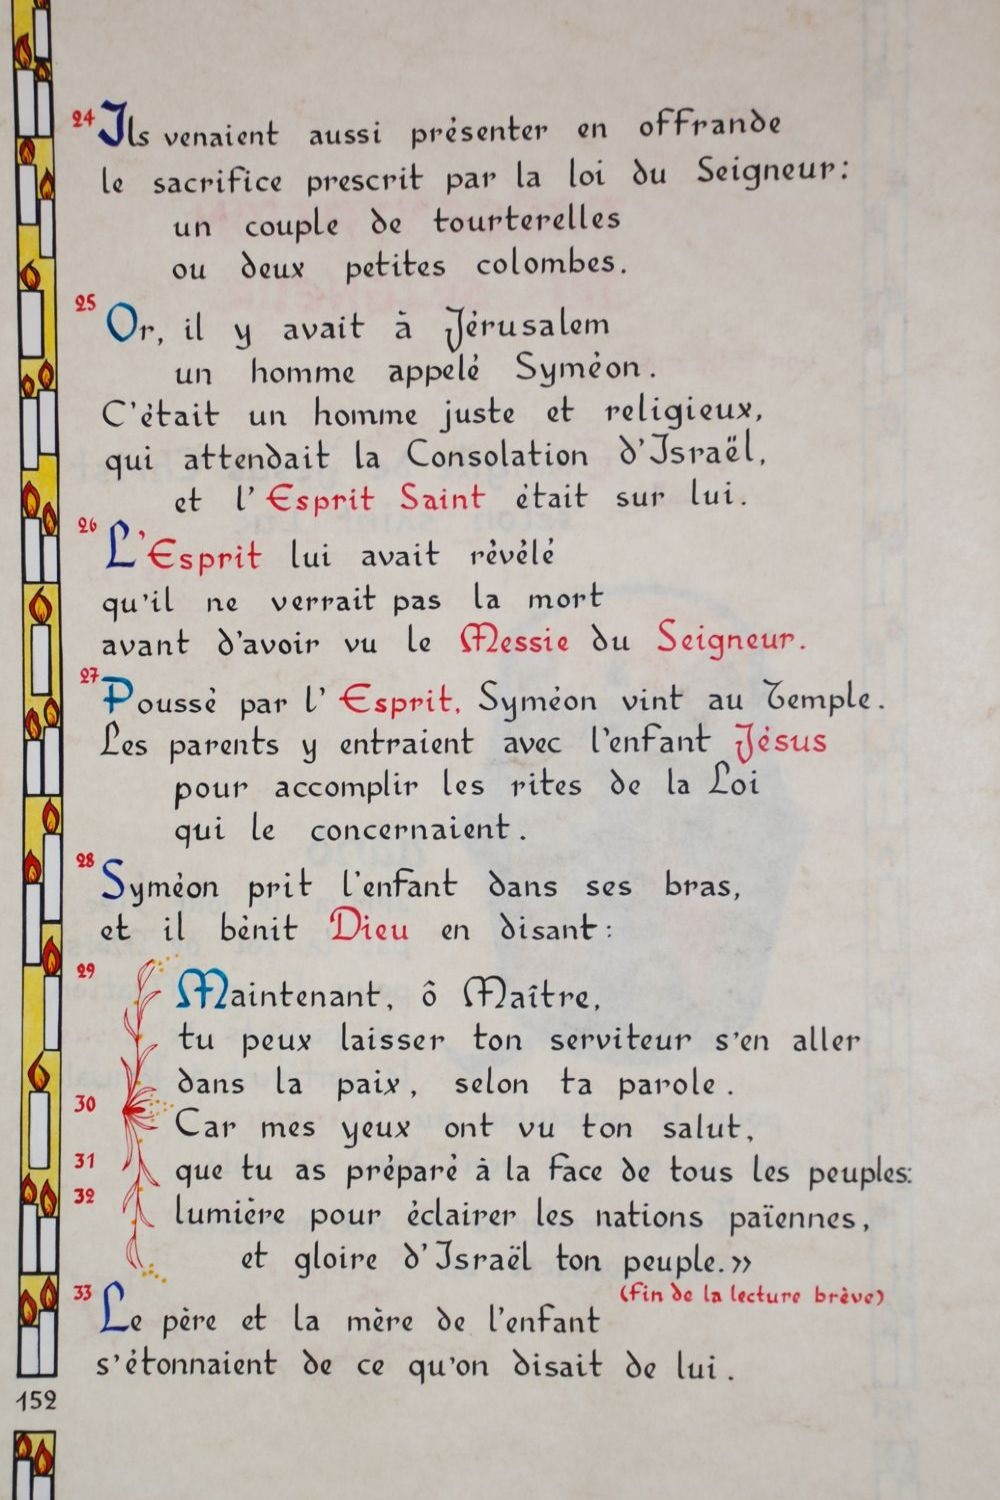 24 Ils venaient aussi présenter en offrande
le sacrifice prescrit par la loi du Seigneur:
un couple de tourterelles
ou deux petites colombes.
25 Or, il y avait à Jérusalem
un homme appelé Syméon.
C'était un homme juste et religieux,
qui attendait la Consolation d'Israël,
et l'Esprit Saint était sur lui.
26 L'Esprit lui avait révélé
qu'il ne verrait pas la mort
avant d'avoir vu le Messie du Seigneur.
27 Poussé par l'Esprit, Syméon vint au Temple.
Les parents y entraient avec l'enfant Jésus
pour accomplir les rites de la Loi
qui le concernaient.
28 Syméon prit l'enfant dans ses bras,
et il bénit Dieu en disant:
29 Maintenant, ô Maître,
tu peux laisser ton serviteur s'en aller
dans la paix, selon ta parole.
30 Car mes yeux ont vu ton salut,
31 que tu as préparé à la face de tous les peuples:
32 lumière pour éclairer les nations païennes,
et gloire d'Israël ton peuple.»
(fin de la lecture brève)
33 Le père et la mère de l'enfant
s'étonnaient de ce qu'on disait de lui.
152